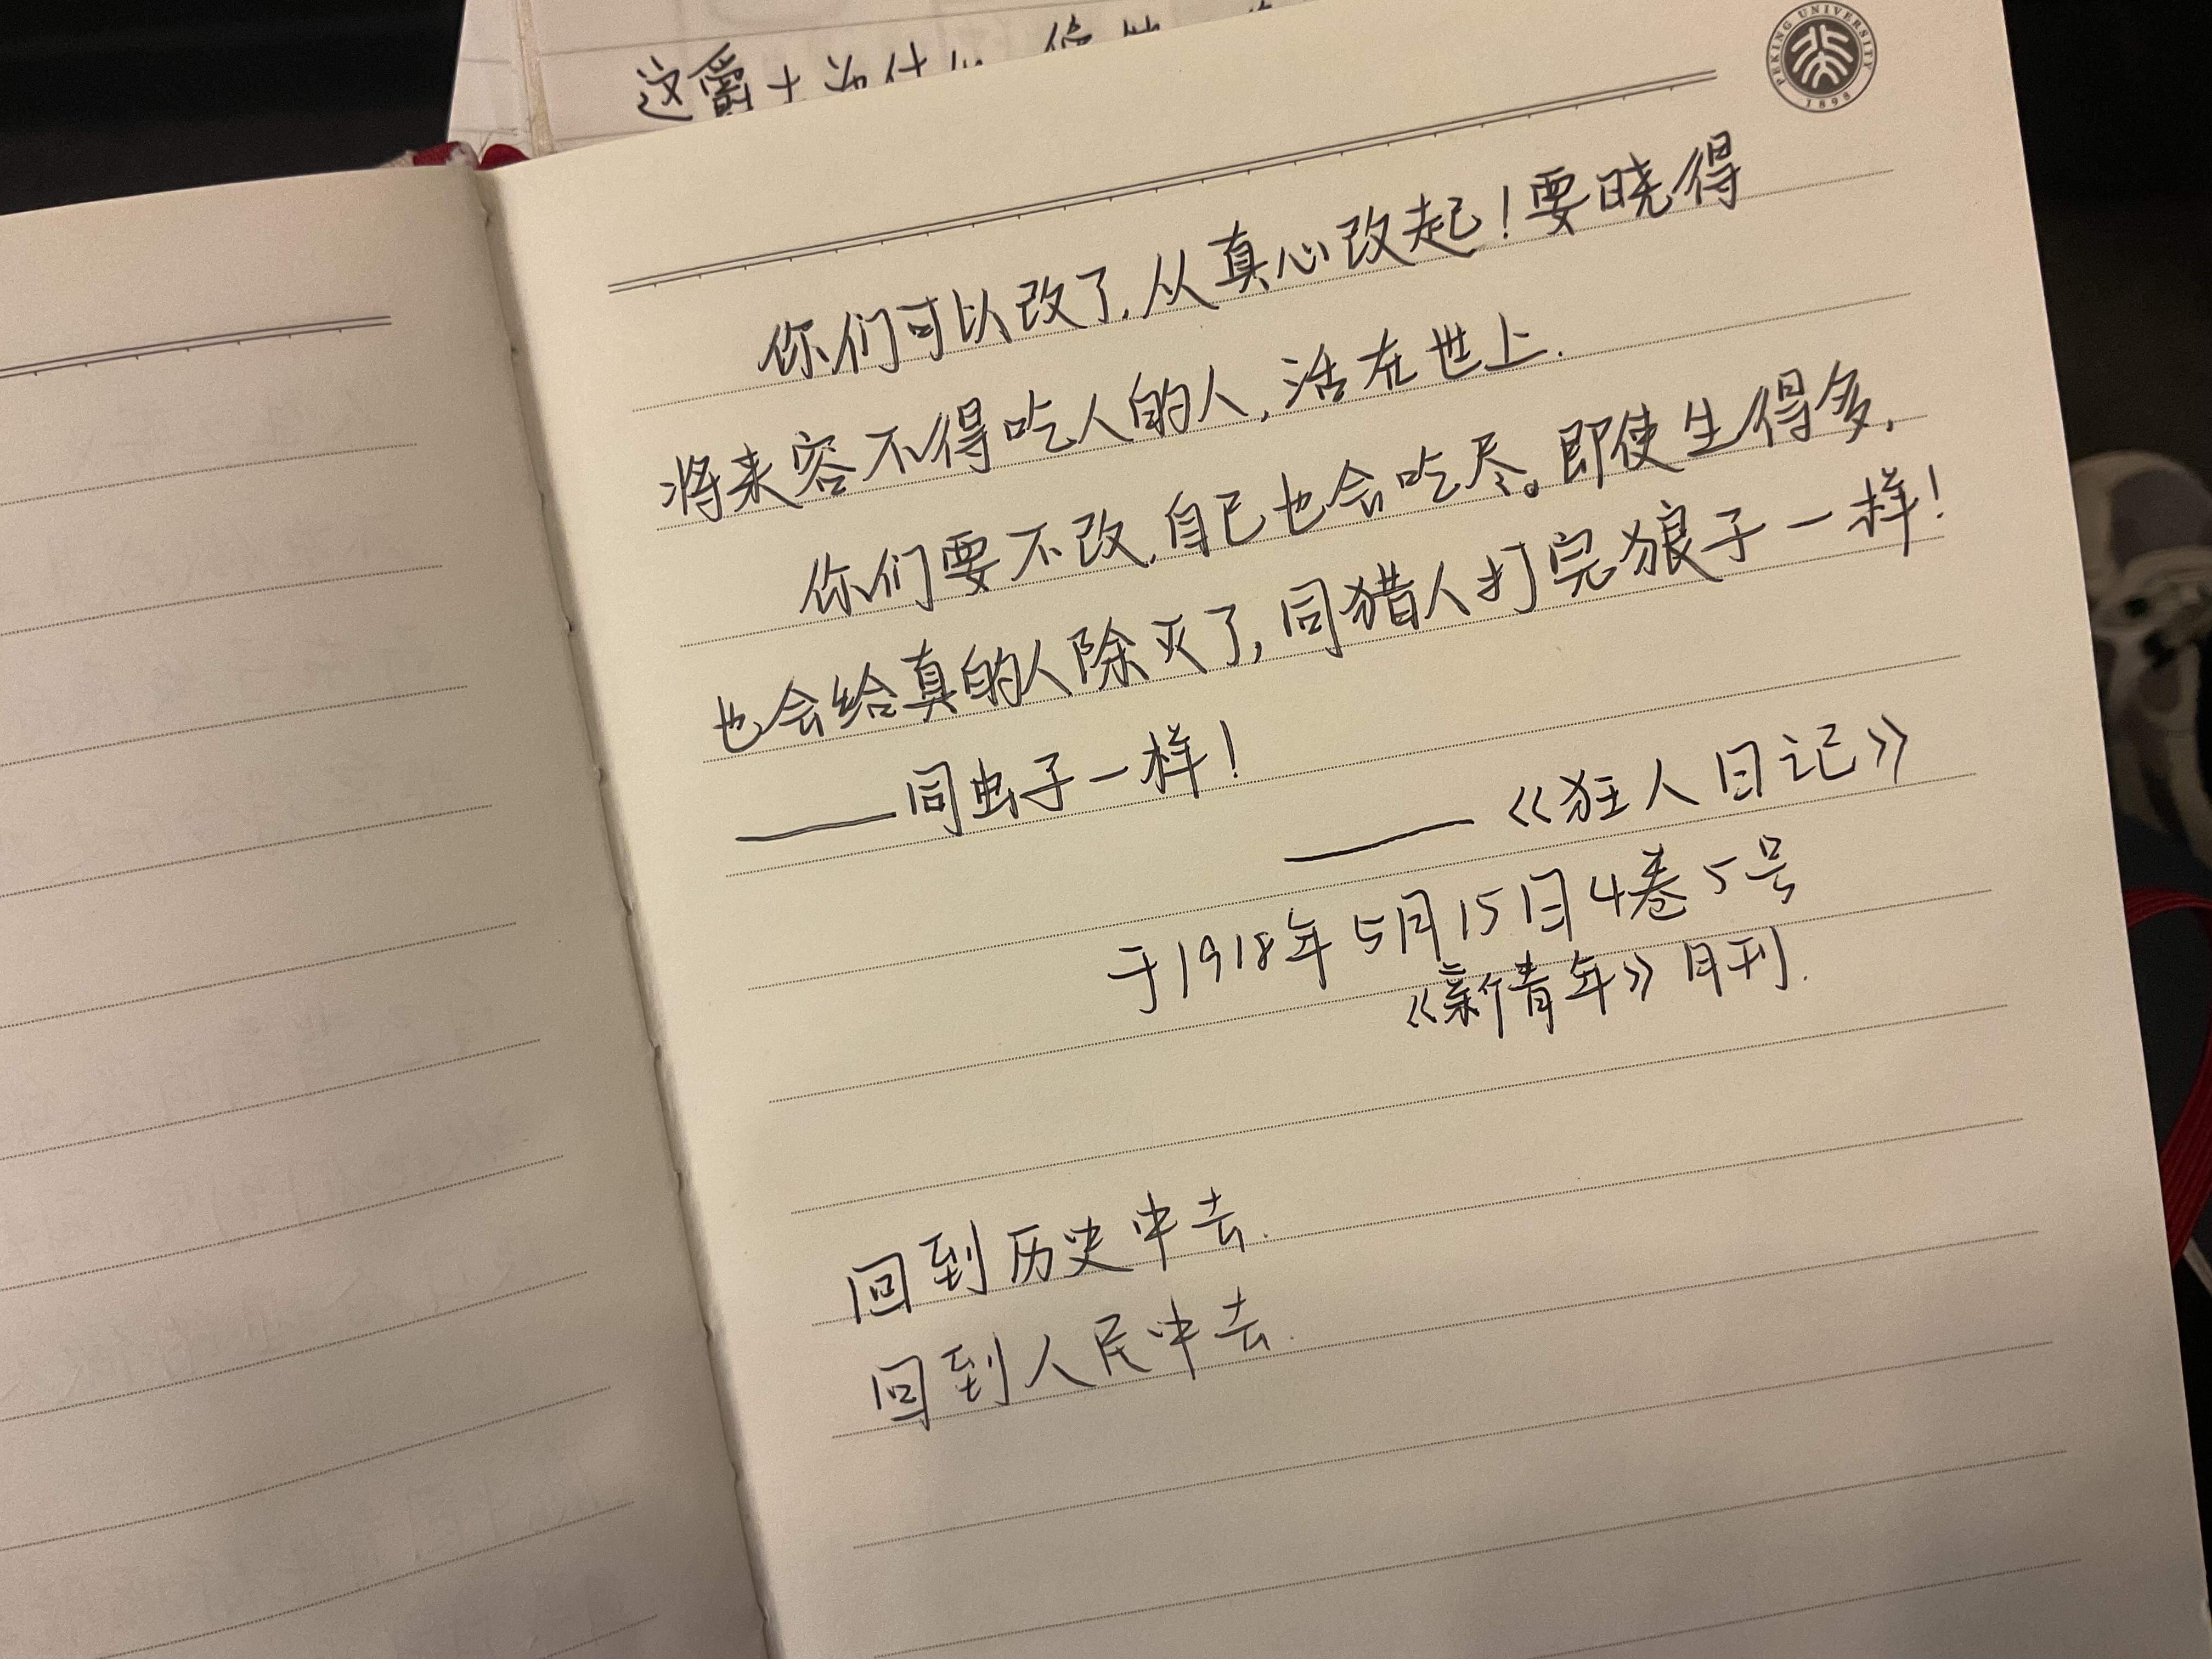 PEKING UNIVERSITY
1898
你们可以改了,从真心改起!要晓得
将来容不得吃人的人,活在世上.
你们要不改,自己也会吃尽。即使生得多,
也会给真的人除灭了,同猎人打完狼子一样!
——同虫子一样!
——《狂人日记》
于1918年5月15日4卷5号
《新青年》月刊.
回到历史中去.
回到人民中去.